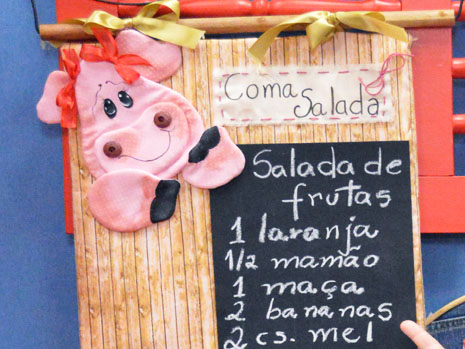 Coma
Salada
Salada de
frutas
1 laranja
1/2 mamão
1 maça
2 bananas
2 cs. mel